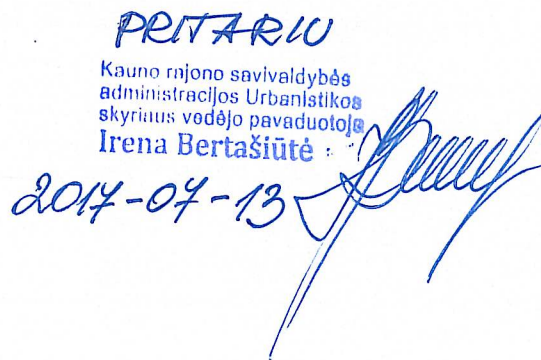 PRITARIU
Kauno rajono savivaldybės
administracijos Urbanistikos
skyriaus vedėjo pavaduotoja
Irena Bertašiūtė
2017-07-13